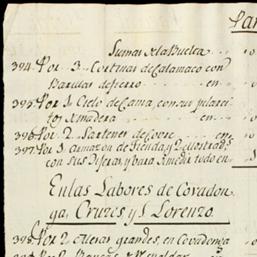 Par
Sumas de la Buelta
394. Por 3 Cortinas de Calamaco con
Barillas de fierro en
395. Por 1 Cielo de Cama, con sus pilares
de Madera en
396. Por 2 Sartenes de Cobre en
397. Por 1 Armazon de Tienda, y 2 Mostrad.s
con sus y una todo en
En las Labores de Covadon
ga, Cruzes, y S. Lorenzo.
398. Por 2 Cueras grandes, en Covadonga